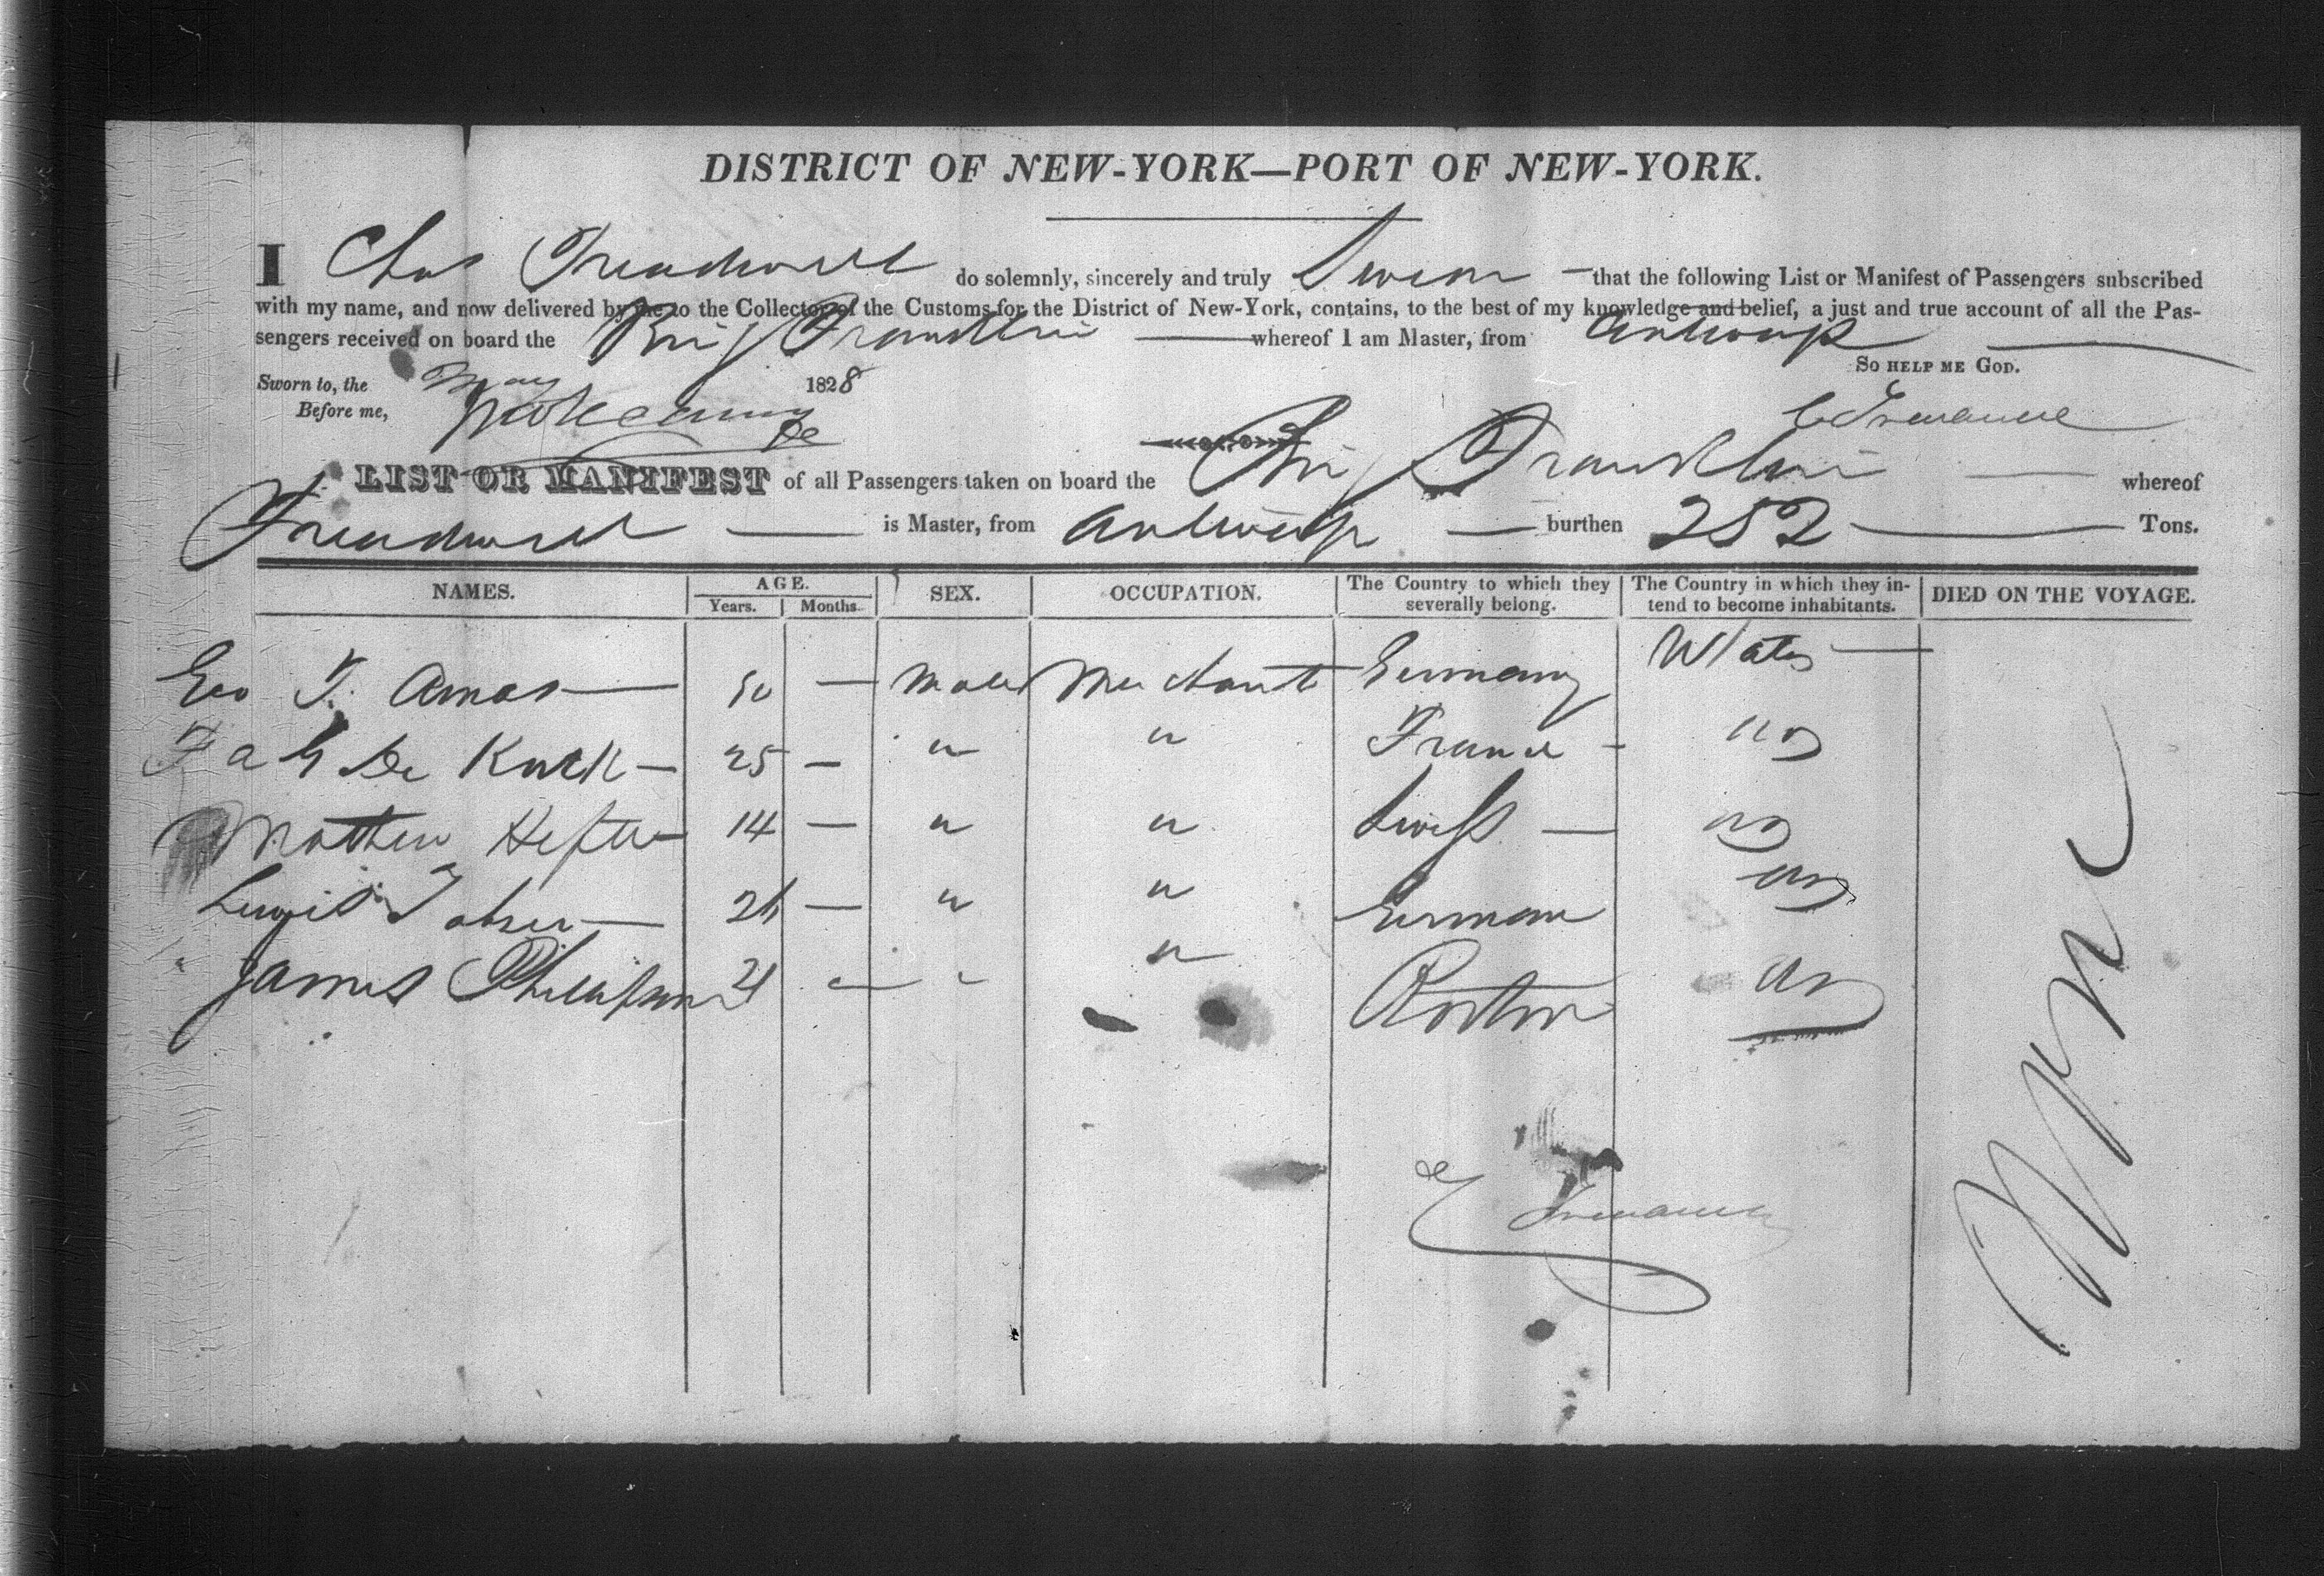 DISTRICT OF NEW-YORK—PORT OF NEW-YORK.
I Chas Treadwell do solemnly, sincerely and truly Swear that the following List or Manifest of Passengers subscribed
with my name, and now delivered by me to the Collector of the Customs for the District of New-York, contains, to the best of my knowledge and belief, a just and true account of all the Pas-
sengers received on board the Brig Franklin whereof I am Master, from Antwerp
SO HELP ME GOD.
Sworn to, the May 1828
Before me,
LIST OR MANIFEST of all Passengers taken on board the Brig Franklin whereof
Treadwell is Master, from Antwerp burthen 252 Tons.
NAMES. AGE. Years. Months SEX. OCCUPATION. The Country to which they severally belong. The Country in which they intend to become inhabitants. DIED ON THE VOYAGE.
Geo T. Amos 50 — Male Merchant Germany U States
F a G De Kock 25 — " " France
Matthew Hefter 14 — " " Swiss —
Lewis Tobser 26 — " " German
James Phillipson 21 — " " Boston
None